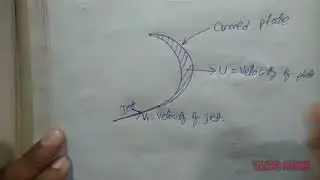 Curved plate
U = Velocity of plate
Jet
V₁ = Velocity of Jet.